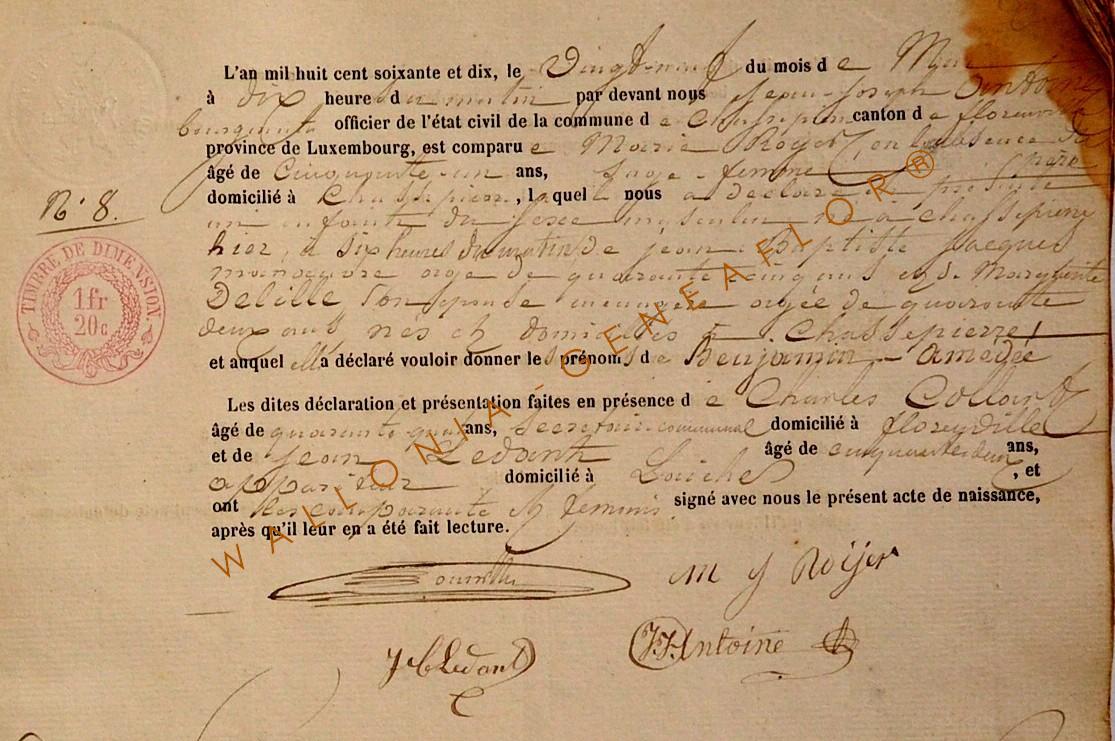 L'an mil huit cent soixante et dix, le Vingt-neuf du mois d e
à dix heure du matin par devant nous Jean-Joseph Antoine
bourgmestre officier de l'état civil de la commune d e Chassepierre canton d e florenville
province de Luxembourg, est comparu e Marie Roger, en l'absence du
âgé de Cinquante-un ans, Sage-femme père
domiciliée à Chassepierre, laquel nous a déclaré présenté
N° 8.
un enfant du sexe masculin né à Chassepierre
hier, à six heures du matin de jean-Baptiste Jacques
manoeuvre âgé de quarante-cinq ans et de Marguerite
Delille son épouse ménagère âgée de quarante
deux ans nés et domiciliés à Chassepierre,
et auquel elle a déclaré vouloir donner les prénoms d e Benjamin-Amedée
TIMBRE DE DIMENSION.
1 fr
20c
Les dites déclaration et présentation faites en présence d e Charles
âgé de ans, Secrétaire communal domicilié à florenville
et de Jean Ledant âgé de cinquante deux ans,
domicilié à Laiche, et
ont les comparante et témoins signé avec nous le présent acte de naissance,
après qu'il leur en a été fait lecture.
M J Roijer
Ledant
JJ Antoine
WALLONIA-GENEAFLOR®